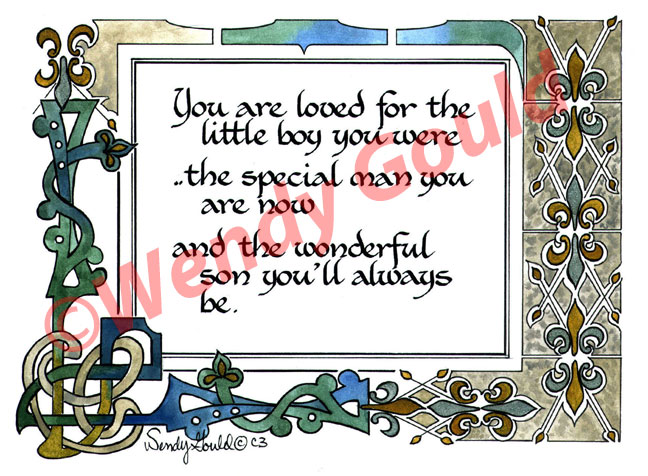 You are loved for the
little boy you were
..the special man you
are now
and the wonderful
son you'll always
be.
©Wendy Gould
Wendy Gould © C3